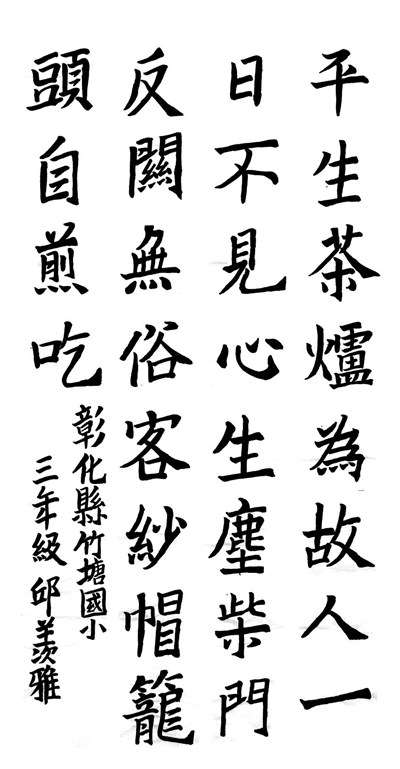 平生茶爐為故人一
日不見心生塵柴門
反關無俗客紗帽籠
頭自煎吃
彰化縣竹塘國小
三年級邱羨雅